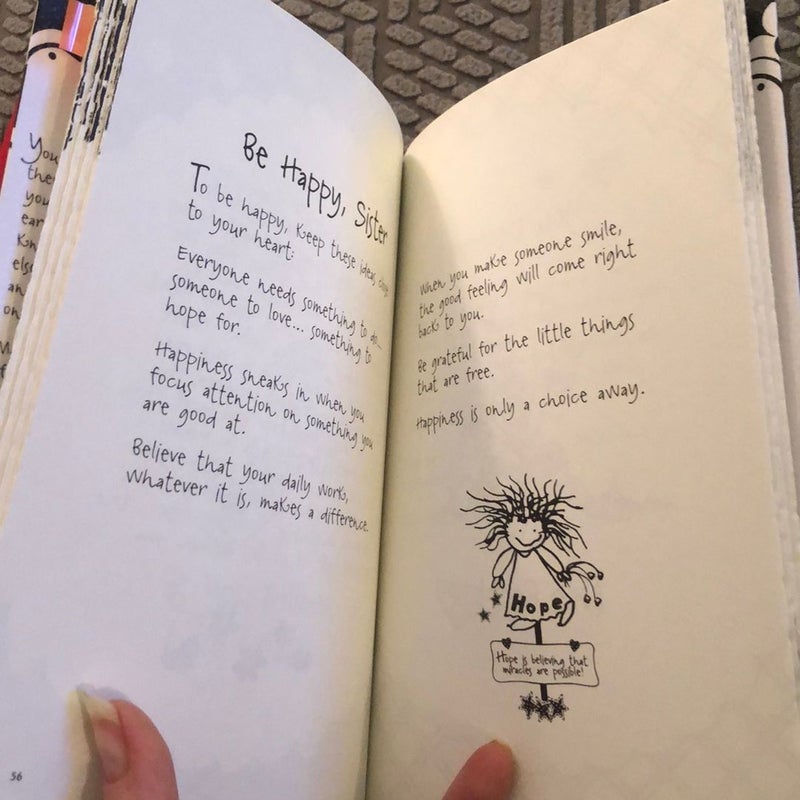 Be Happy, Sister
To be happy, keep these ideas close
to your heart:
Everyone needs something to do...
someone to love... something to
hope for.
Happiness sneaks in when you
focus attention on something you
are good at.
Believe that your daily work,
whatever it is, makes a difference.
56
When you make someone smile,
the good feeling will come right
back to you.
Be grateful for the little things
that are free.
Happiness is only a choice away.
Hope
Hope is believing that
miracles are possible!